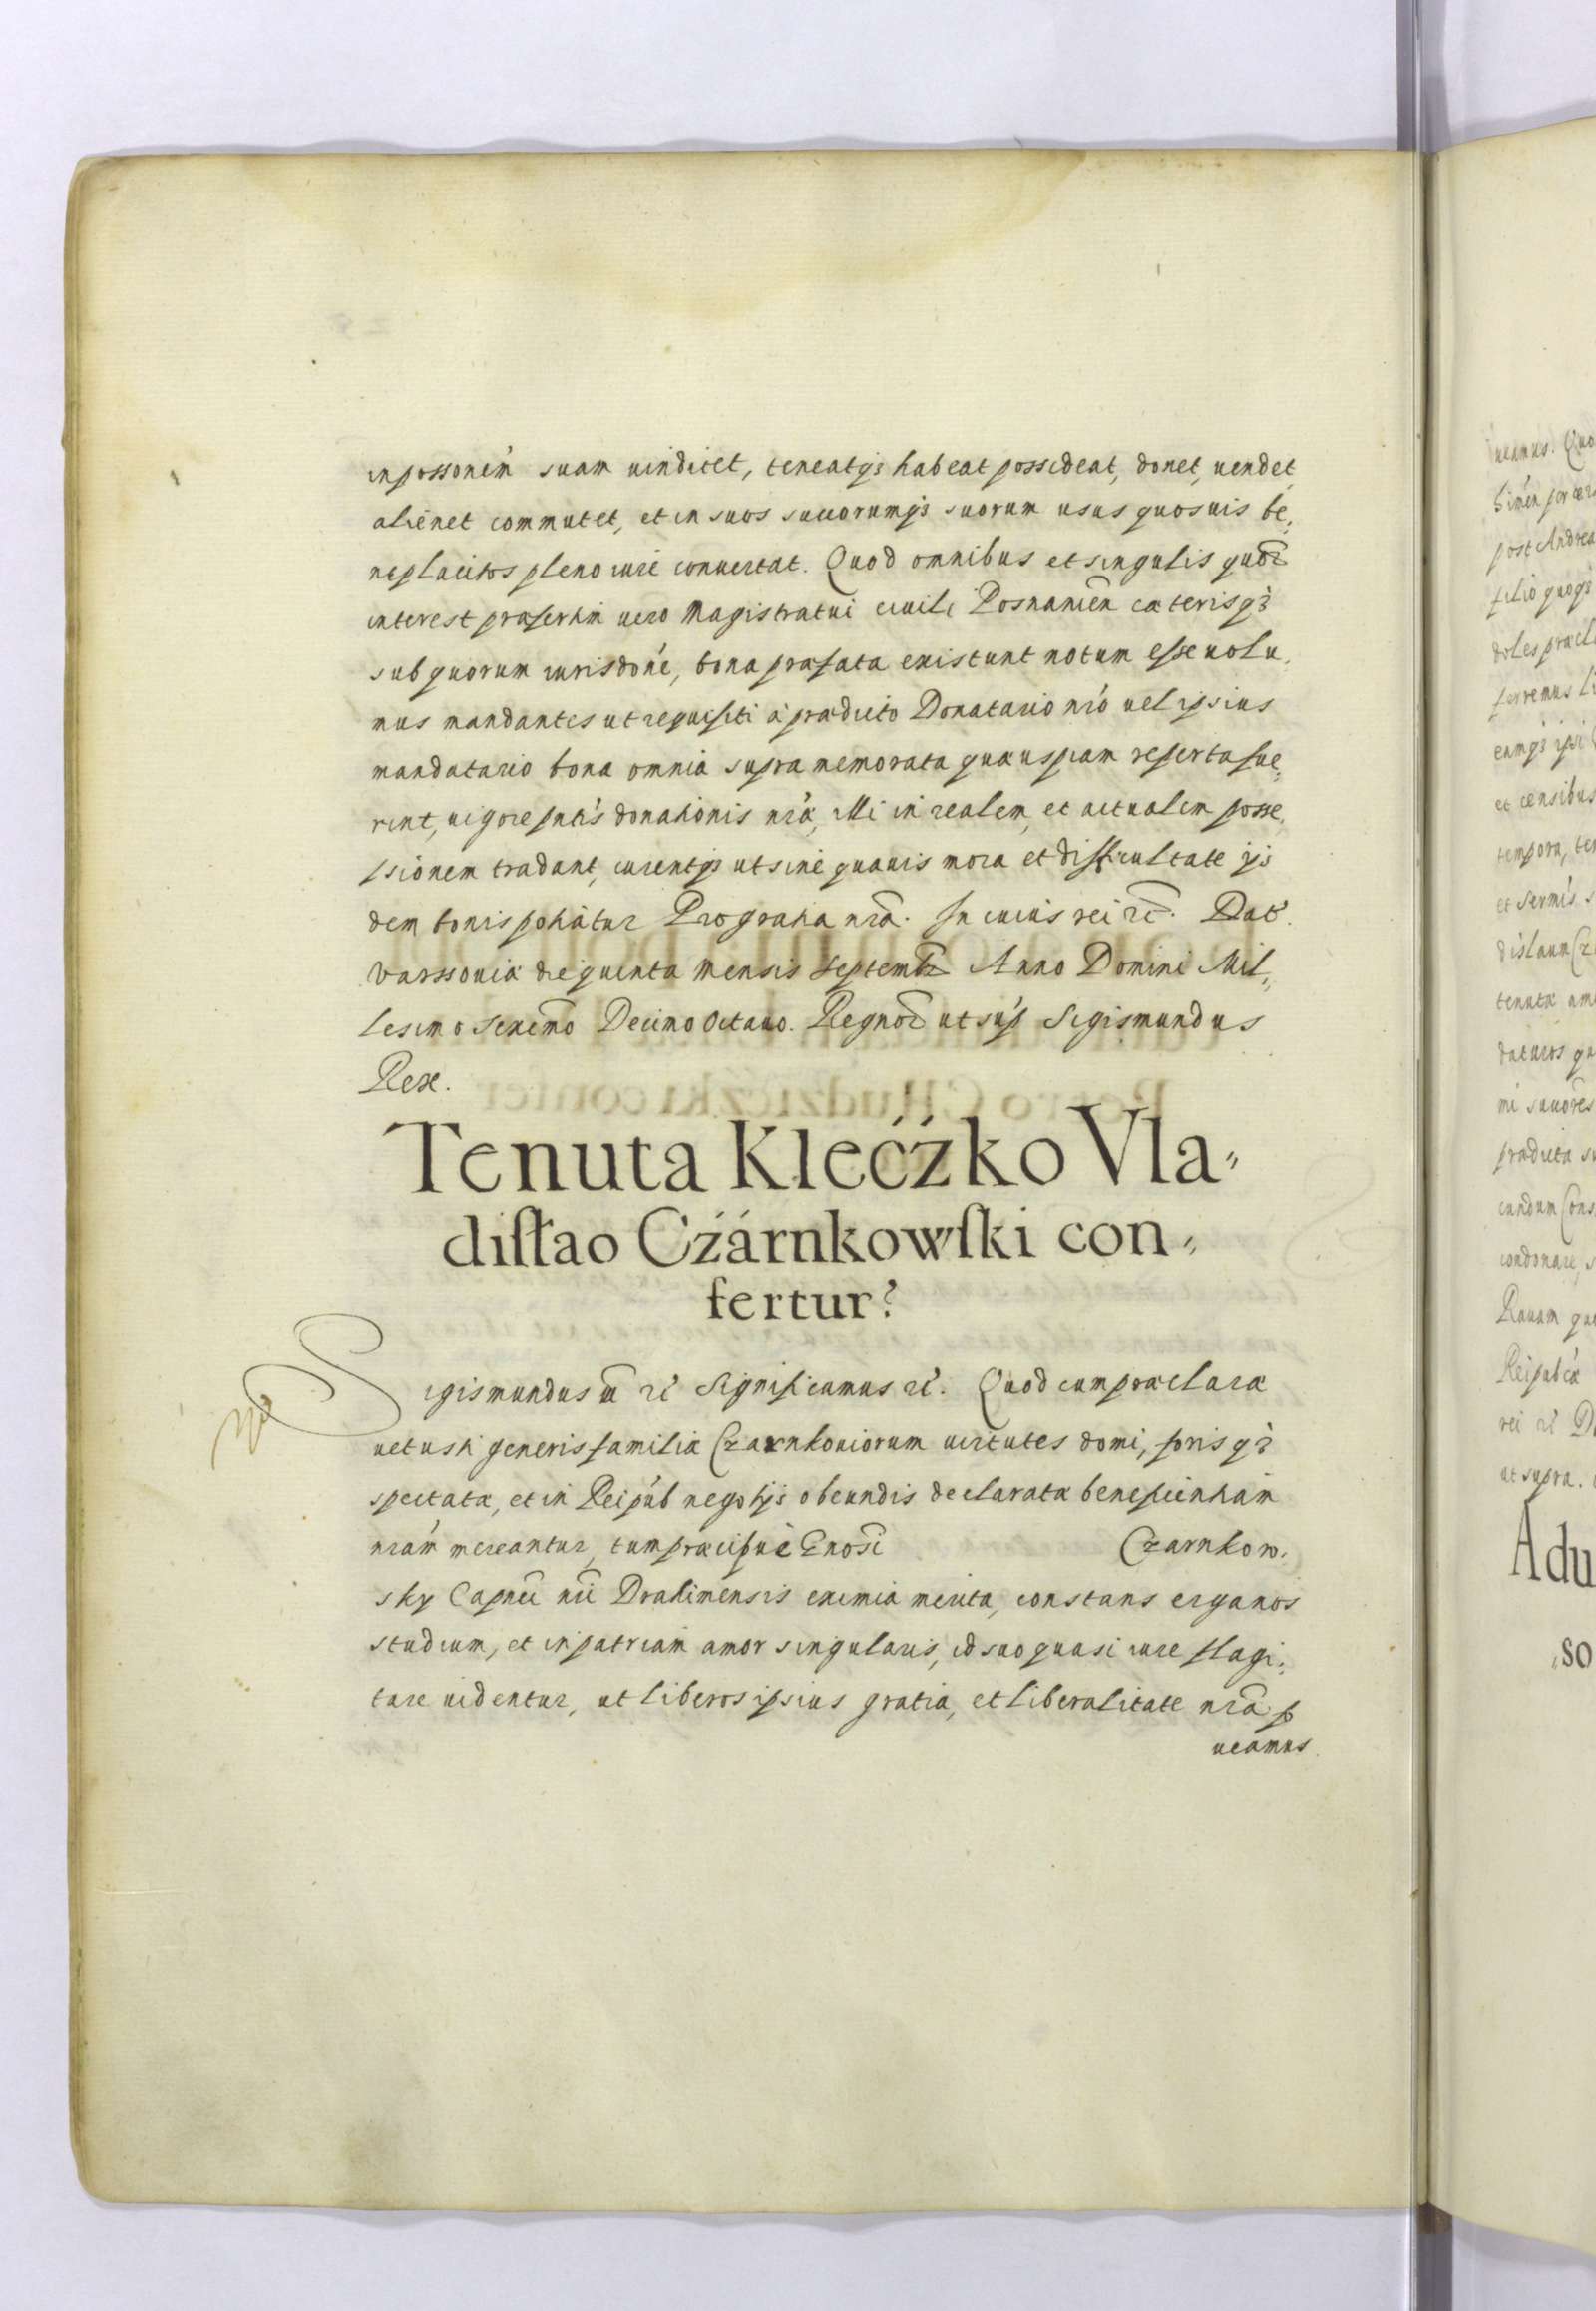 in possonem̄ suam vindicet, teneatqȝ habeat possideat, donet, vendet
alienet commutet, et in suos suc̄corumqȝ suorum usus quosvis be,
neplacitos pleno iure convertat. Quod omnibus et singulis quor̄
interest præsertim vero Magistratui civili Posnanien̄ cæterisqȝ
sub quorum iurisdōne, bona præfata existunt notum esse volu,
mus mandantes ut requisiti à prædicto Donatario nrō vel ipsius
mandatario bona omnia supra memorata quæ uspiam reperta fue,
rint, vigore pn̄tis donationis nr̄æ, illi in realem, et actualem posse,
ssionem tradant, curentqȝ ut sine quavis mora et difficultate ijs
dem bonis potiatur Pro gratia nr̄a. In cuius rei rc̄. Dat̄.
Varssoviæ die quinta Mensis Septembr̄ Anno Domini Mil,
lesimo Sexcm̄o Decimo Octavo. Regnor̄ ut sup̄ Sigismundus
Rex.
Tenuta Klećźko Vla,
disłao Cźárnkowski con,
fertur.
Sigismundus rc̄ Significamus rc̄. Quod cum præclaræ
vetusti generis familiæ Czarnkoviorum virtutes domi, forisqȝ
spectatæ, et in Reipub̄ negotijs obeundis declaratæ beneficentiam
nr̄am mereantur, tum præcipuè Gnosi Czarnkow,
sky Capnei nr̄i Drahimensis eximia merita, constans erga nos
studium, et in patriam amor singularis, id suo quasi iure flagi,
tare videntur, ut liberos ipsius gratia, et liberalitate nr̄a p̱
veamus
neamus. Quo
post Andrea
filio quoqȝ
doles præcl
eamqȝ ipsi
et censibus
tempora, te
tenutæ am
prædicta su
condonare, s
Ravam qu
ut supra.
Adu
so